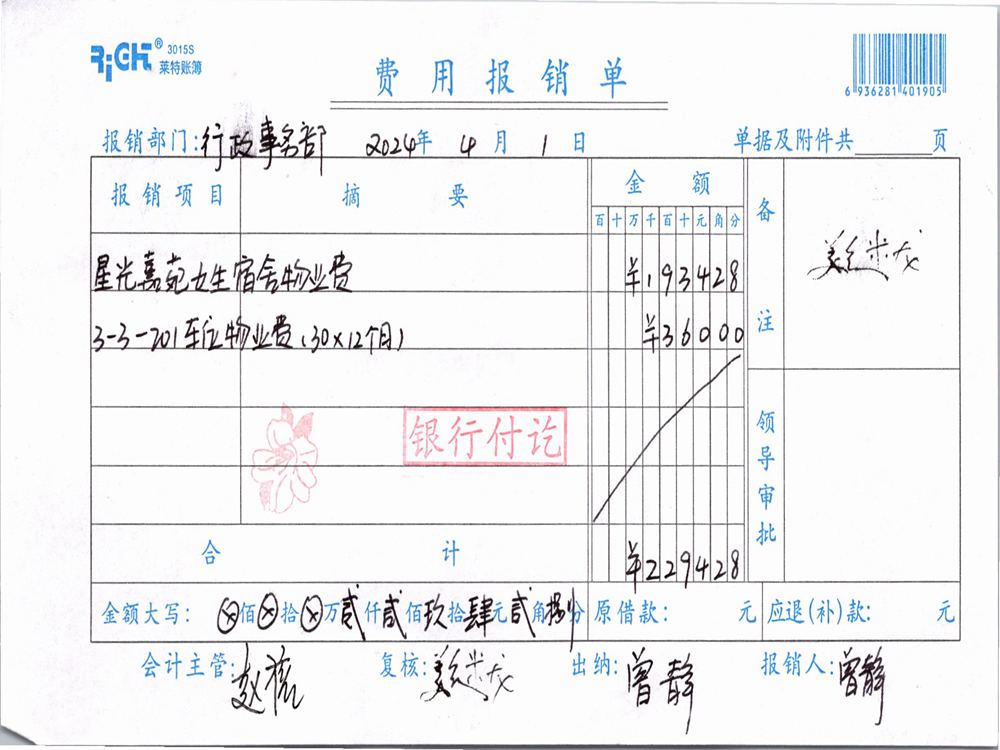 RiGHT® 3015S
莱特账簿
费用报销单
6 936281 401905
报销部门:行政事务部 2024年 4月 1日 单据及附件共 页
报销项目 摘要 金额 备注
百十万千百十元角分
星光嘉苑女生宿舍物业费 ¥193428
3-3-201车位物业费(30×12个月) ¥36000
银行付讫
领导审批
合计 ¥229428
金额大写: ⊗佰⊗拾⊗万贰仟贰佰玖拾肆元贰角捌分 原借款: 元 应退(补)款: 元
会计主管: 复核: 出纳:曾静 报销人:曾静